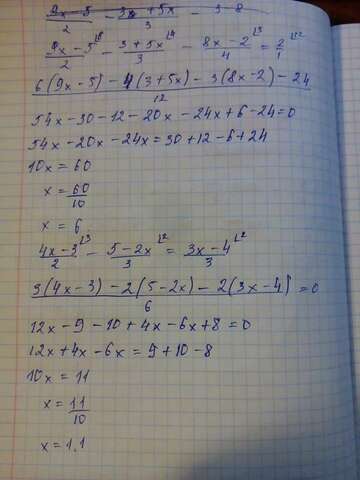 (9x-5)/2 - (3+5x)/3 - (8x-2)/4 = 2/1
6(9x-5) - 4(3+5x) - 3(8x-2) - 24
12
54x-30-12-20x-24x+6-24=0
54x-20x-24x=30+12-6+24
10x = 60
x = 60/10
x = 6
(4x-3)/2 - (5-2x)/3 = (3x-4)/3
3(4x-3) - 2(5-2x) - 2(3x-4) = 0
6
12x-9-10+4x-6x+8=0
12x+4x-6x=9+10-8
10x = 11
x = 11/10
x = 1,1